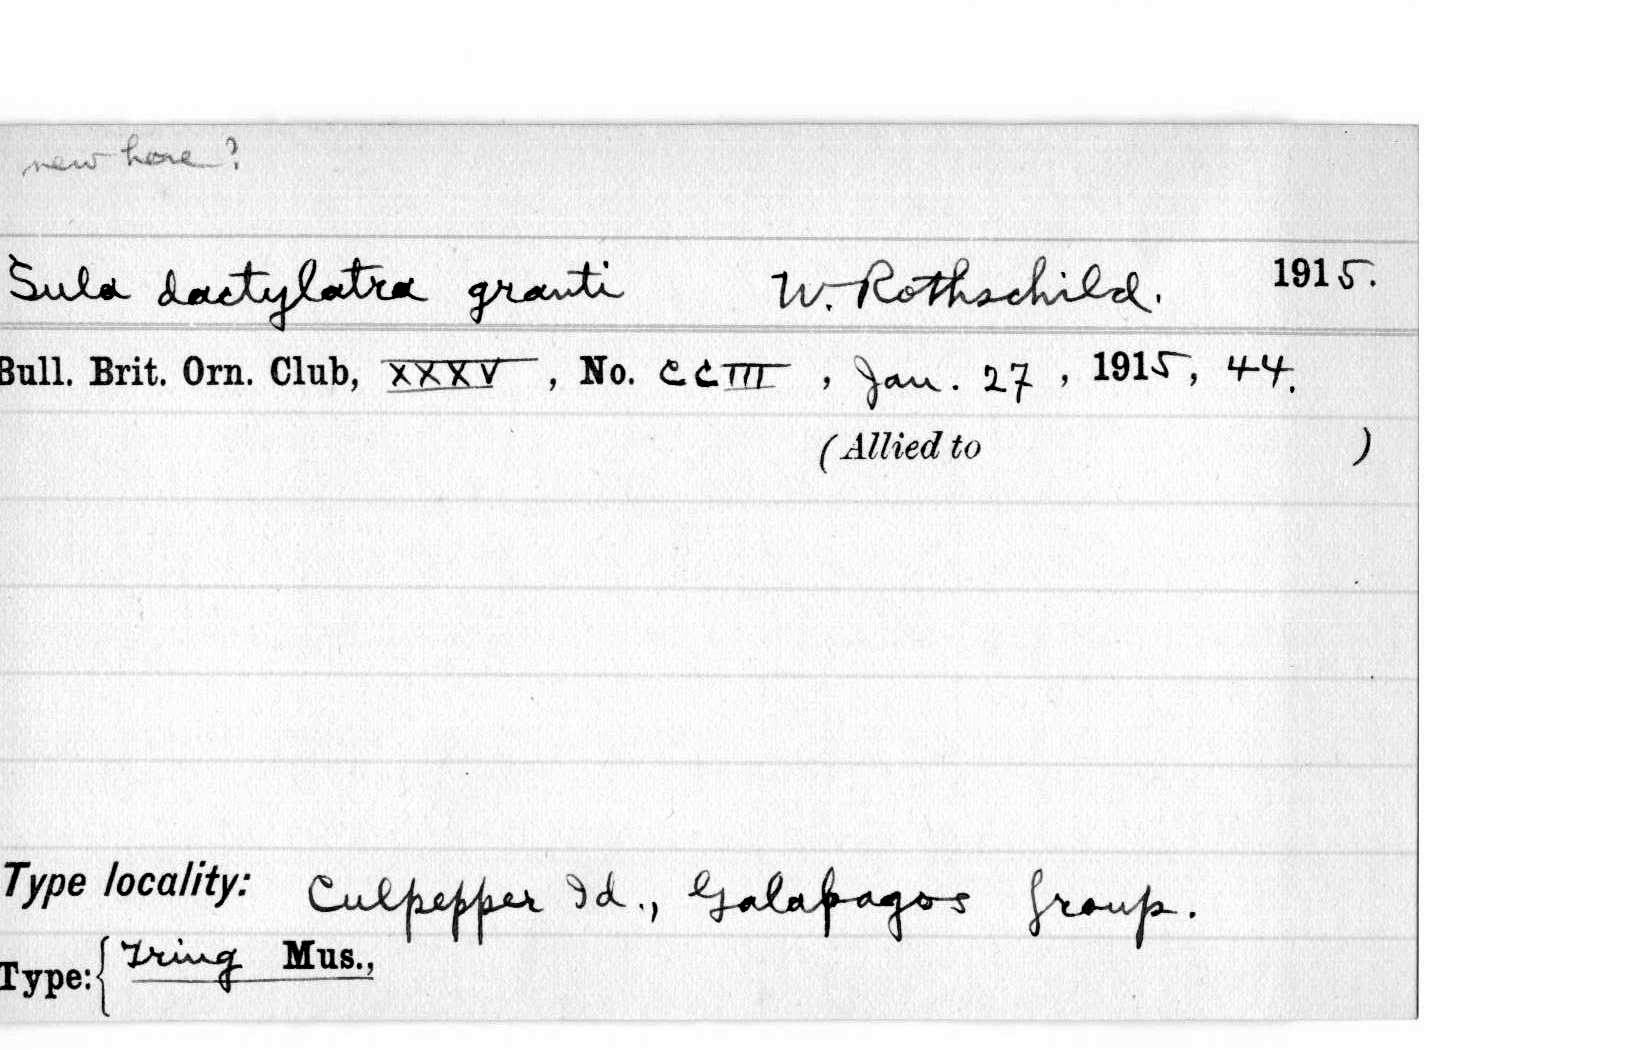 new here?
Sula dactylatra granti W. Rothschild. 1915.
Bull. Brit. Orn. Club, XXXV, No. CCIII, Jan. 27, 1915, 44.
(Allied to )
Type locality: Culpepper Id., Galapagos Group.
Type: { Tring Mus.,